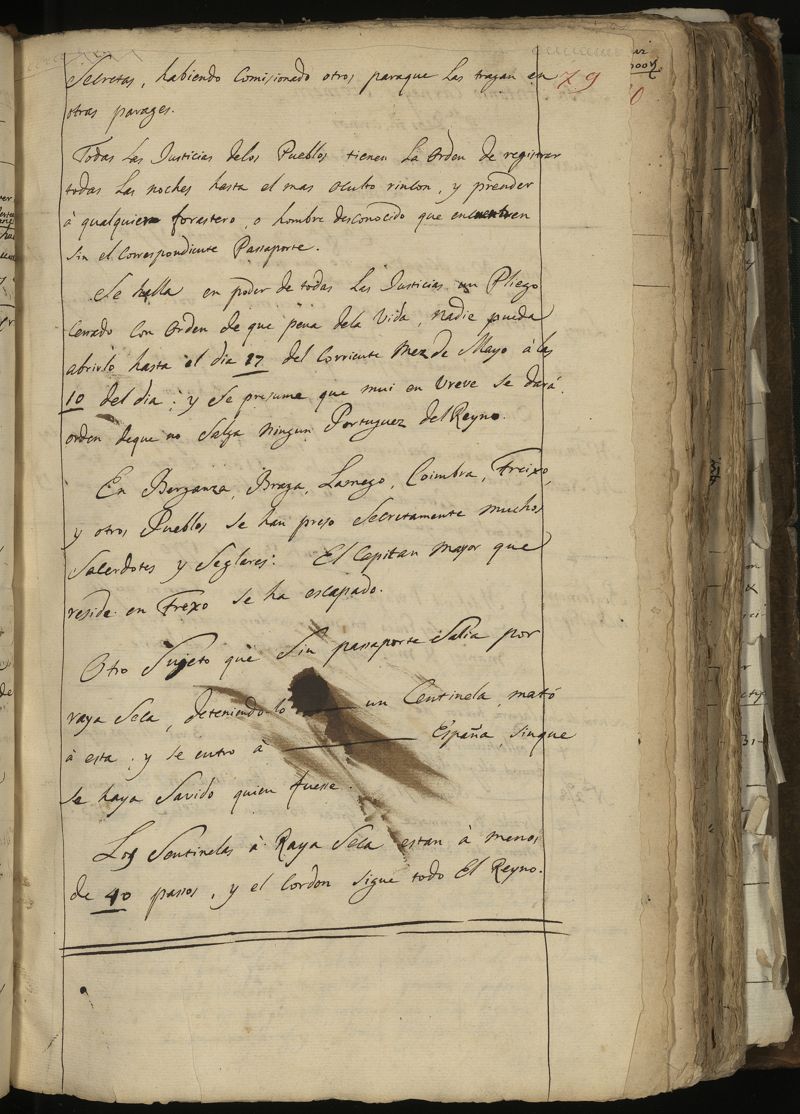 Secretas, habiendo Comisionado otros paraque las trayan en
79
otras parages.
Todas las Justicias delos Pueblos tienen la orden de registrar
todas las noches hasta el mas oculto rincon, y prender
à qualquiera forastero, o hombre desconocido que encuentren
sin el correspondiente Passaporte.
Se halla en poder de todas las Justicias un Pliego
Cerrado con orden de que pena dela Vida, nadie pueda
abrirlo hasta el dia 17 del corriente Mez de Mayo à las
10 del dia; y se presume que mui en vreve se dará
orden deque no Salga ningun Portuguez del Reyno.
En Berganza, Braga, Lamego, Coimbra, Freixo,
y otros Pueblos se han preso Secretamente muchos
Sacerdotes y Seglares: El Capitan mayor que
reside en Frexo se ha escapado.
Otro Sujeto que Sin passaporte Salia por
raya Seca, deteniendo-lo un Centinela, mató
à esta; y se entro à España, sinque
se haya Savido quien fuesse.
Los Sentinelas à Raya Seca estan à menos
de 40 passos, y el Cordon sigue todo El Reyno.